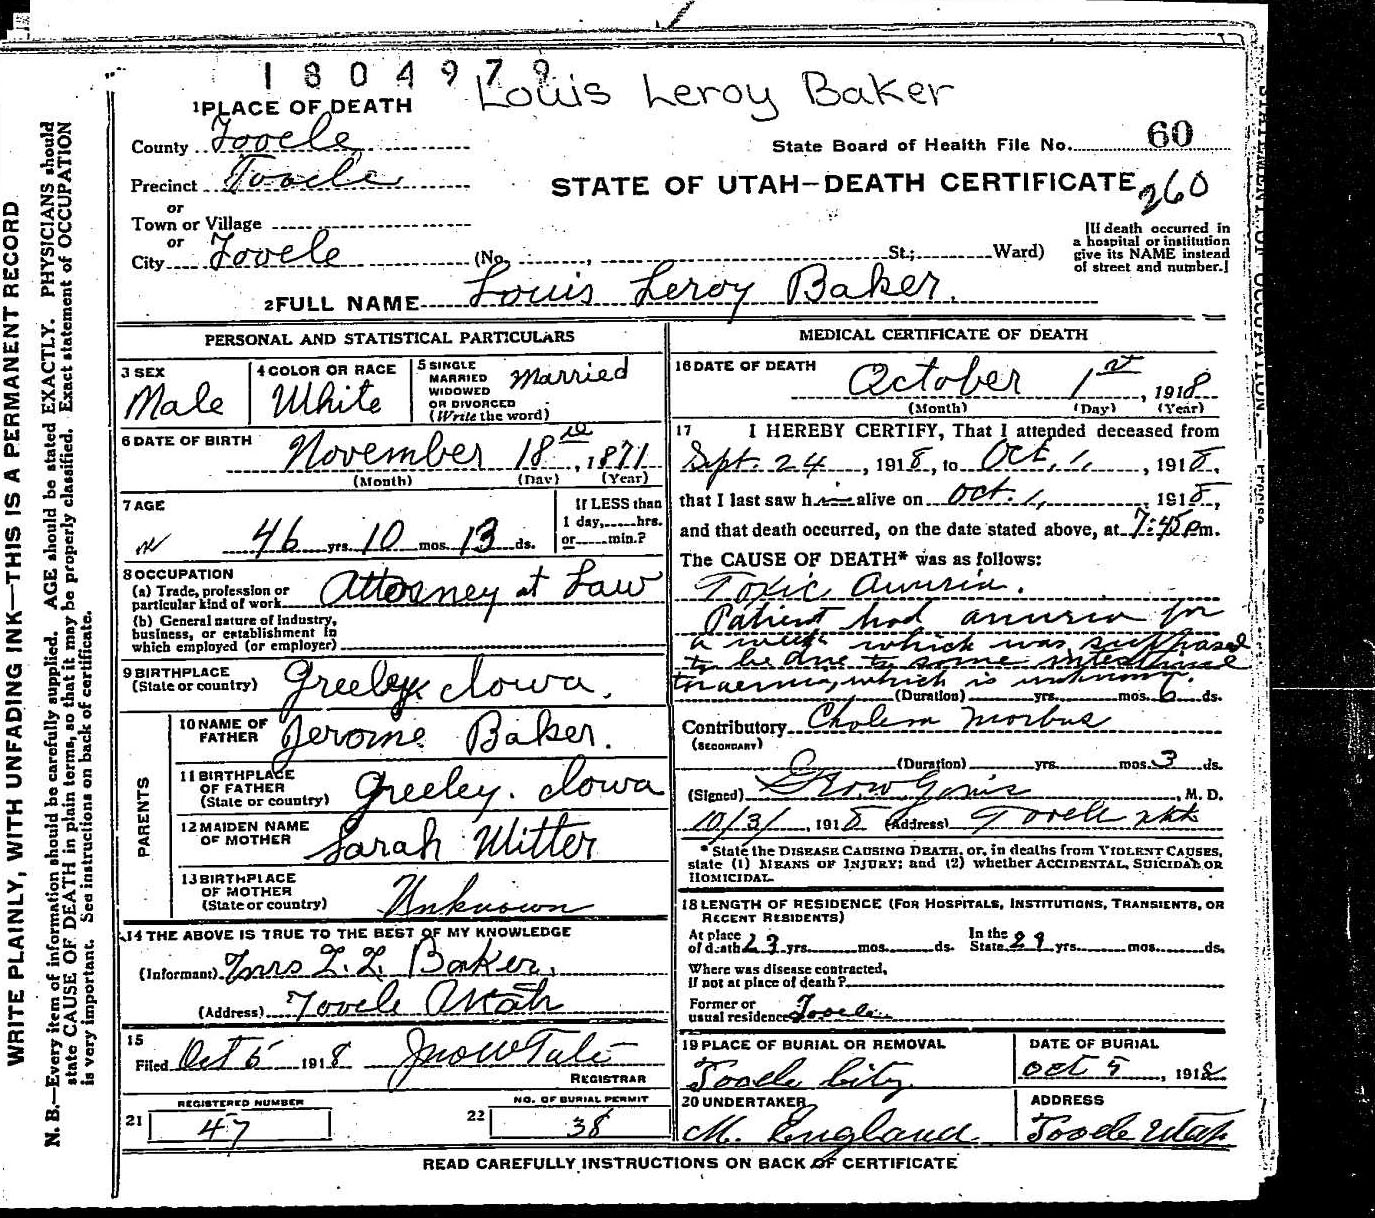 1804979
Louis Leroy Baker
1 PLACE OF DEATH
County Tooele
State Board of Health File No. 60
Precinct Tooele
STATE OF UTAH—DEATH CERTIFICATE 260
or
Town or Village
or
City Tooele (No. , St.; Ward)
[If death occurred in
a hospital or institution
give its NAME instead
of street and number.]
2 FULL NAME Louis Leroy Baker.
PERSONAL AND STATISTICAL PARTICULARS
3 SEX
Male
4 COLOR OR RACE
White
5 SINGLE
MARRIED
WIDOWED
OR DIVORCED
(Write the word)
Married
6 DATE OF BIRTH
November 18, 1871
(Month) (Day) (Year)
7 AGE
46 yrs. 10 mos. 13 ds.
If LESS than
1 day, hrs.
or min.?
8 OCCUPATION
(a) Trade, profession or
particular kind of work Attorney at Law
(b) General nature of Industry,
business, or establishment in
which employed (or employer)
9 BIRTHPLACE
(State or country) Greeley Iowa.
PARENTS
10 NAME OF
FATHER Jerome Baker.
11 BIRTHPLACE
OF FATHER
(State or country) Greeley. Iowa
12 MAIDEN NAME
OF MOTHER Sarah Witter
13 BIRTHPLACE
OF MOTHER
(State or country) Unknown
14 THE ABOVE IS TRUE TO THE BEST OF MY KNOWLEDGE
(Informant) Mrs L. L. Baker.
(Address) Tooele Utah
15
Filed Oct 5 1918 Jno W Tate
REGISTRAR
REGISTERED NUMBER
21 47
NO. OF BURIAL PERMIT
22 38
MEDICAL CERTIFICATE OF DEATH
16 DATE OF DEATH
October 1st, 1918
(Month) (Day) (Year)
17 I HEREBY CERTIFY, That I attended deceased from
Sept. 24, 1918, to Oct. 1, 1918,
that I last saw him alive on Oct. 1, 1918,
and that death occurred, on the date stated above, at 7:45 Pm.
The CAUSE OF DEATH* was as follows:
Toxic Anuria.
Patient had anuria for
a week which was supposed
to be due to some intestinal
toxaemia, which is unknown.
(Duration) yrs. mos. 6 ds.
Contributory Cholera Morbus
(SECONDARY)
(Duration) yrs. mos. 3 ds.
(Signed) , M. D.
10/3/, 1918 (Address) Tooele Utah
* State the DISEASE CAUSING DEATH, or, in deaths from VIOLENT CAUSES,
state (1) MEANS OF INJURY; and (2) whether ACCIDENTAL, SUICIDAL OR
HOMICIDAL.
18 LENGTH OF RESIDENCE (FOR HOSPITALS, INSTITUTIONS, TRANSIENTS, OR
RECENT RESIDENTS)
At place
of death 23 yrs. mos. ds.
In the
State 29 yrs. mos. ds.
Where was disease contracted,
If not at place of death?
Former or
usual residence Tooele
19 PLACE OF BURIAL OR REMOVAL
Tooele City.
DATE OF BURIAL
Oct 5, 1918
20 UNDERTAKER
M. England
ADDRESS
Tooele Utah
READ CAREFULLY INSTRUCTIONS ON BACK OF CERTIFICATE
WRITE PLAINLY, WITH UNFADING INK—THIS IS A PERMANENT RECORD
N. B.—Every item of information should be carefully supplied. AGE should be stated EXACTLY. PHYSICIANS should
state CAUSE OF DEATH in plain terms, so that it may be properly classified. Exact statement of OCCUPATION
is very important. See instructions on back of certificate.